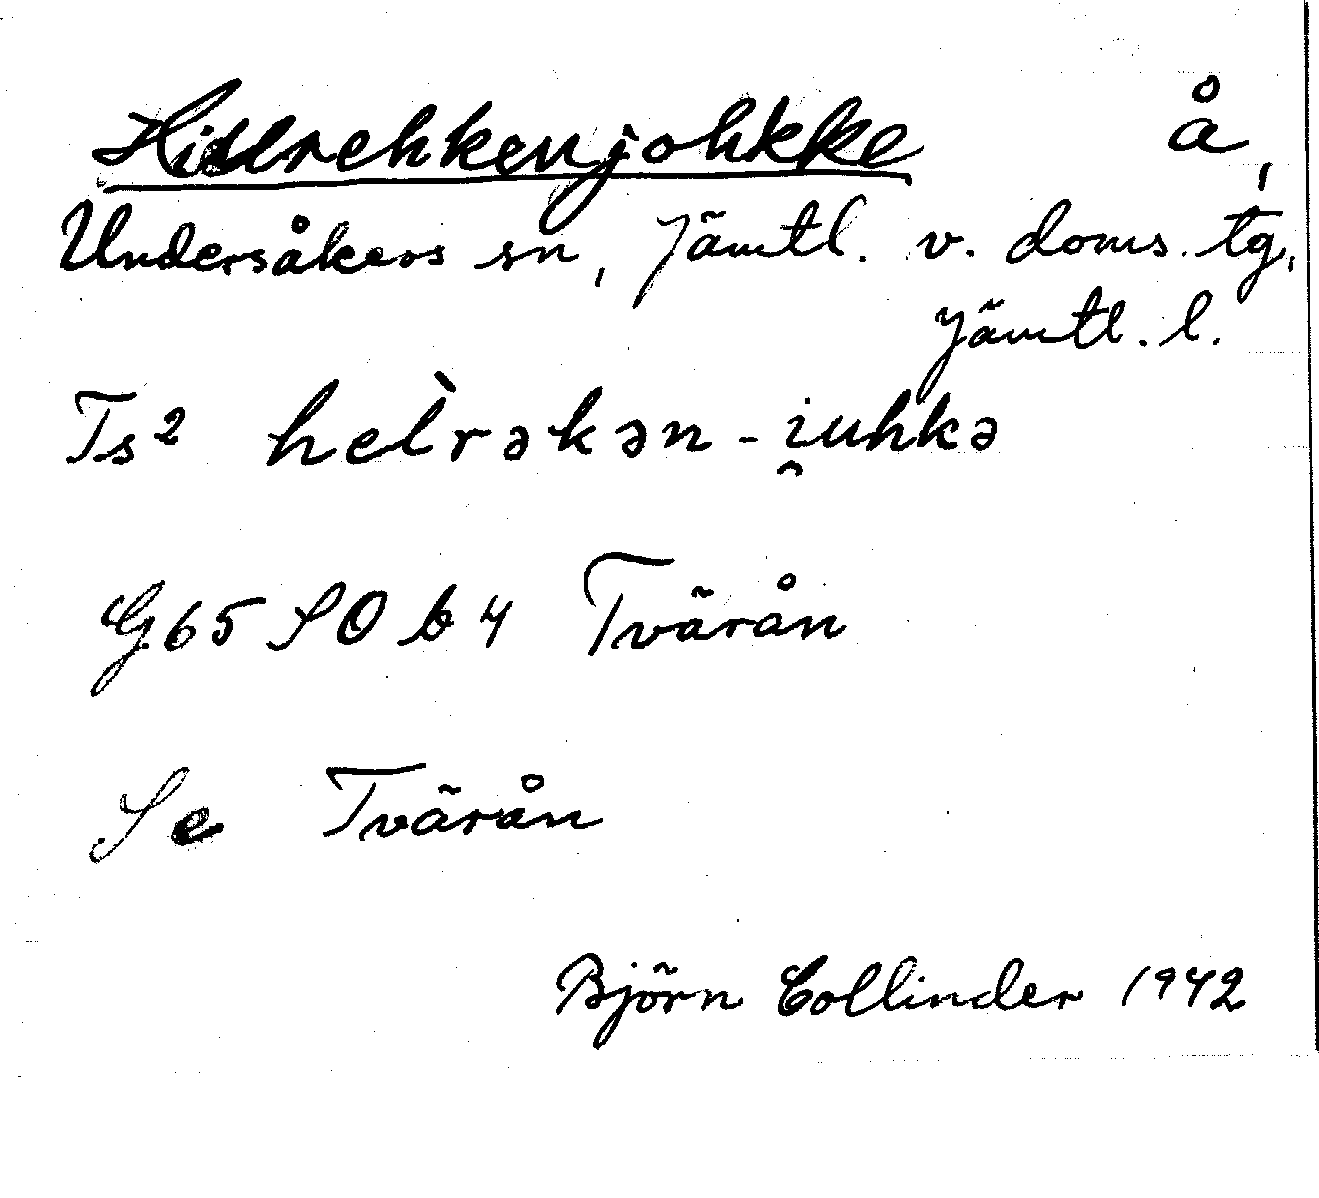 Hillrehkenjohkke å,
Undersåkers sn, Jämtl. v. doms. tg,
Jämtl. l.
Ts² hel̀rəkən-i̯uhkə
G65 SO b 4 Tvärån
Se Tvärån
Björn Collinder 1942